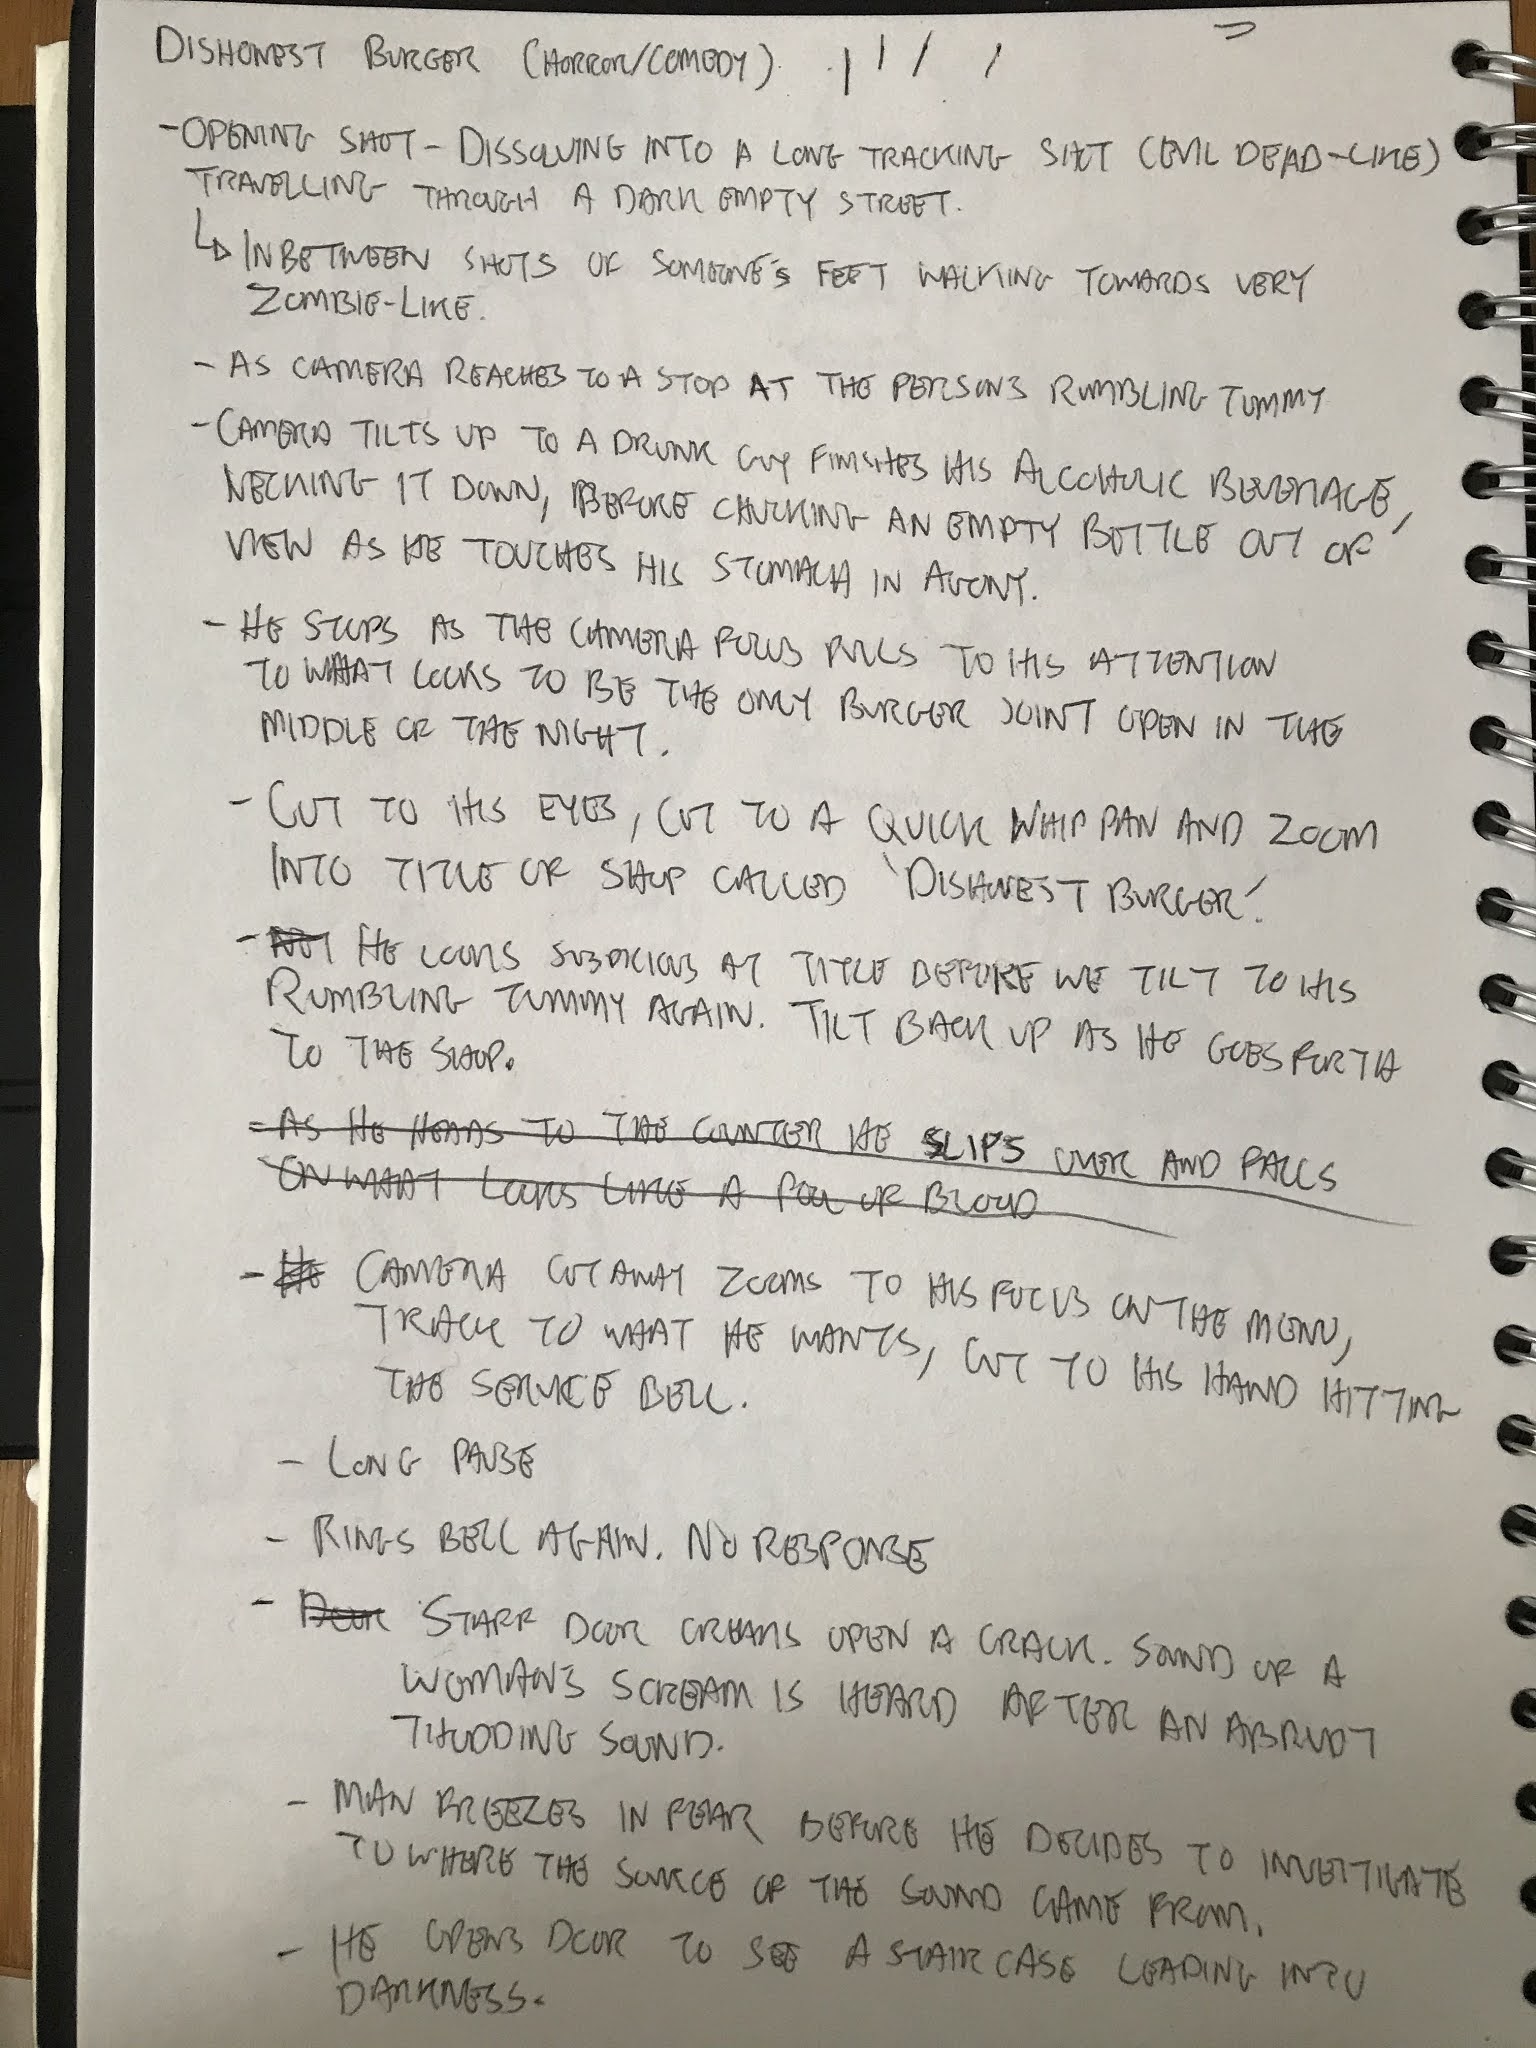 DISHONEST BURGER (HORROR/COMEDY)
- OPENING SHOT - DISSOLVING INTO A LONG TRACKING SHOT (EVIL DEAD-LIKE)
TRAVELLING THROUGH A DARK EMPTY STREET.
↳ INBETWEEN SHOTS OF SOMEONE'S FEET WALKING TOWARDS VERY
ZOMBIE-LIKE.
- AS CAMERA REACHES TO A STOP AT THE PERSONS RUMBLING TUMMY
- CAMERA TILTS UP TO A DRUNK GUY FINISHES HIS ALCOHOLIC BEVERAGE,
NECKING IT DOWN, BEFORE CHUCKING AN EMPTY BOTTLE OUT OF
VIEW AS HE TOUCHES HIS STOMACH IN AGONY.
- HE STOPS AS THE CAMERA FOCUS PULLS TO HIS ATTENTION
TO WHAT LOOKS TO BE THE ONLY BURGER JOINT OPEN IN THE
MIDDLE OF THE NIGHT.
- CUT TO HIS EYES, CUT TO A QUICK WHIP PAN AND ZOOM
INTO TITLE OF SHOP CALLED 'DISHONEST BURGER'.
- HE LOOKS SUSPICIOUS AT TITLE BEFORE WE TILT TO HIS
RUMBLING TUMMY AGAIN. TILT BACK UP AS HE GOES FORTH
TO THE SHOP.
- AS HE HEADS TO THE COUNTER HE SLIPS OVER AND FALLS
ON WHAT LOOKS LIKE A POOL OF BLOOD
- HE CAMERA CUTAWAY ZOOMS TO HIS FOCUS ON THE MENU,
TRACK TO WHAT HE WANTS, CUT TO HIS HAND HITTING
THE SERVICE BELL.
- LONG PAUSE
- RINGS BELL AGAIN. NO RESPONSE
- DOOR STAFF DOOR CREAKS OPEN A CRACK. SOUND OF A
WOMAN'S SCREAM IS HEARD AFTER AN ABRUPT
THUDDING SOUND.
- MAN FREEZES IN FEAR BEFORE HE DECIDES TO INVESTIGATE
TO WHERE THE SOURCE OF THE SOUND CAME FROM.
- HE OPENS DOOR TO SEE A STAIRCASE LEADING INTO
DARKNESS.